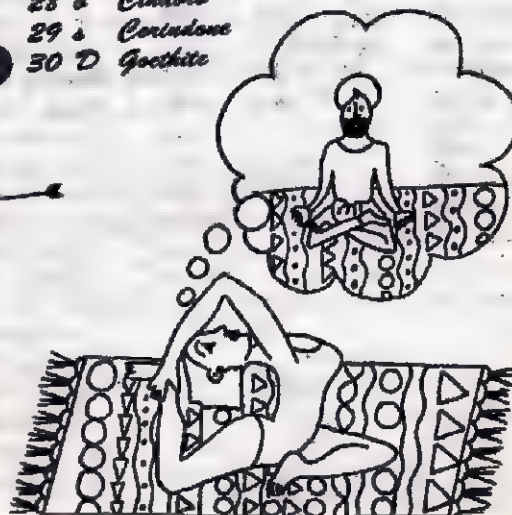 28
29 s Corindone
30 D Goethite